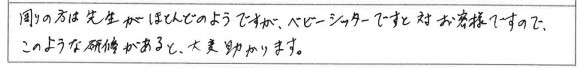 周りの方は先生がほとんどのようですが、ベビーシッターですと対お客様ですので、
このような研修があると、大変助かります。